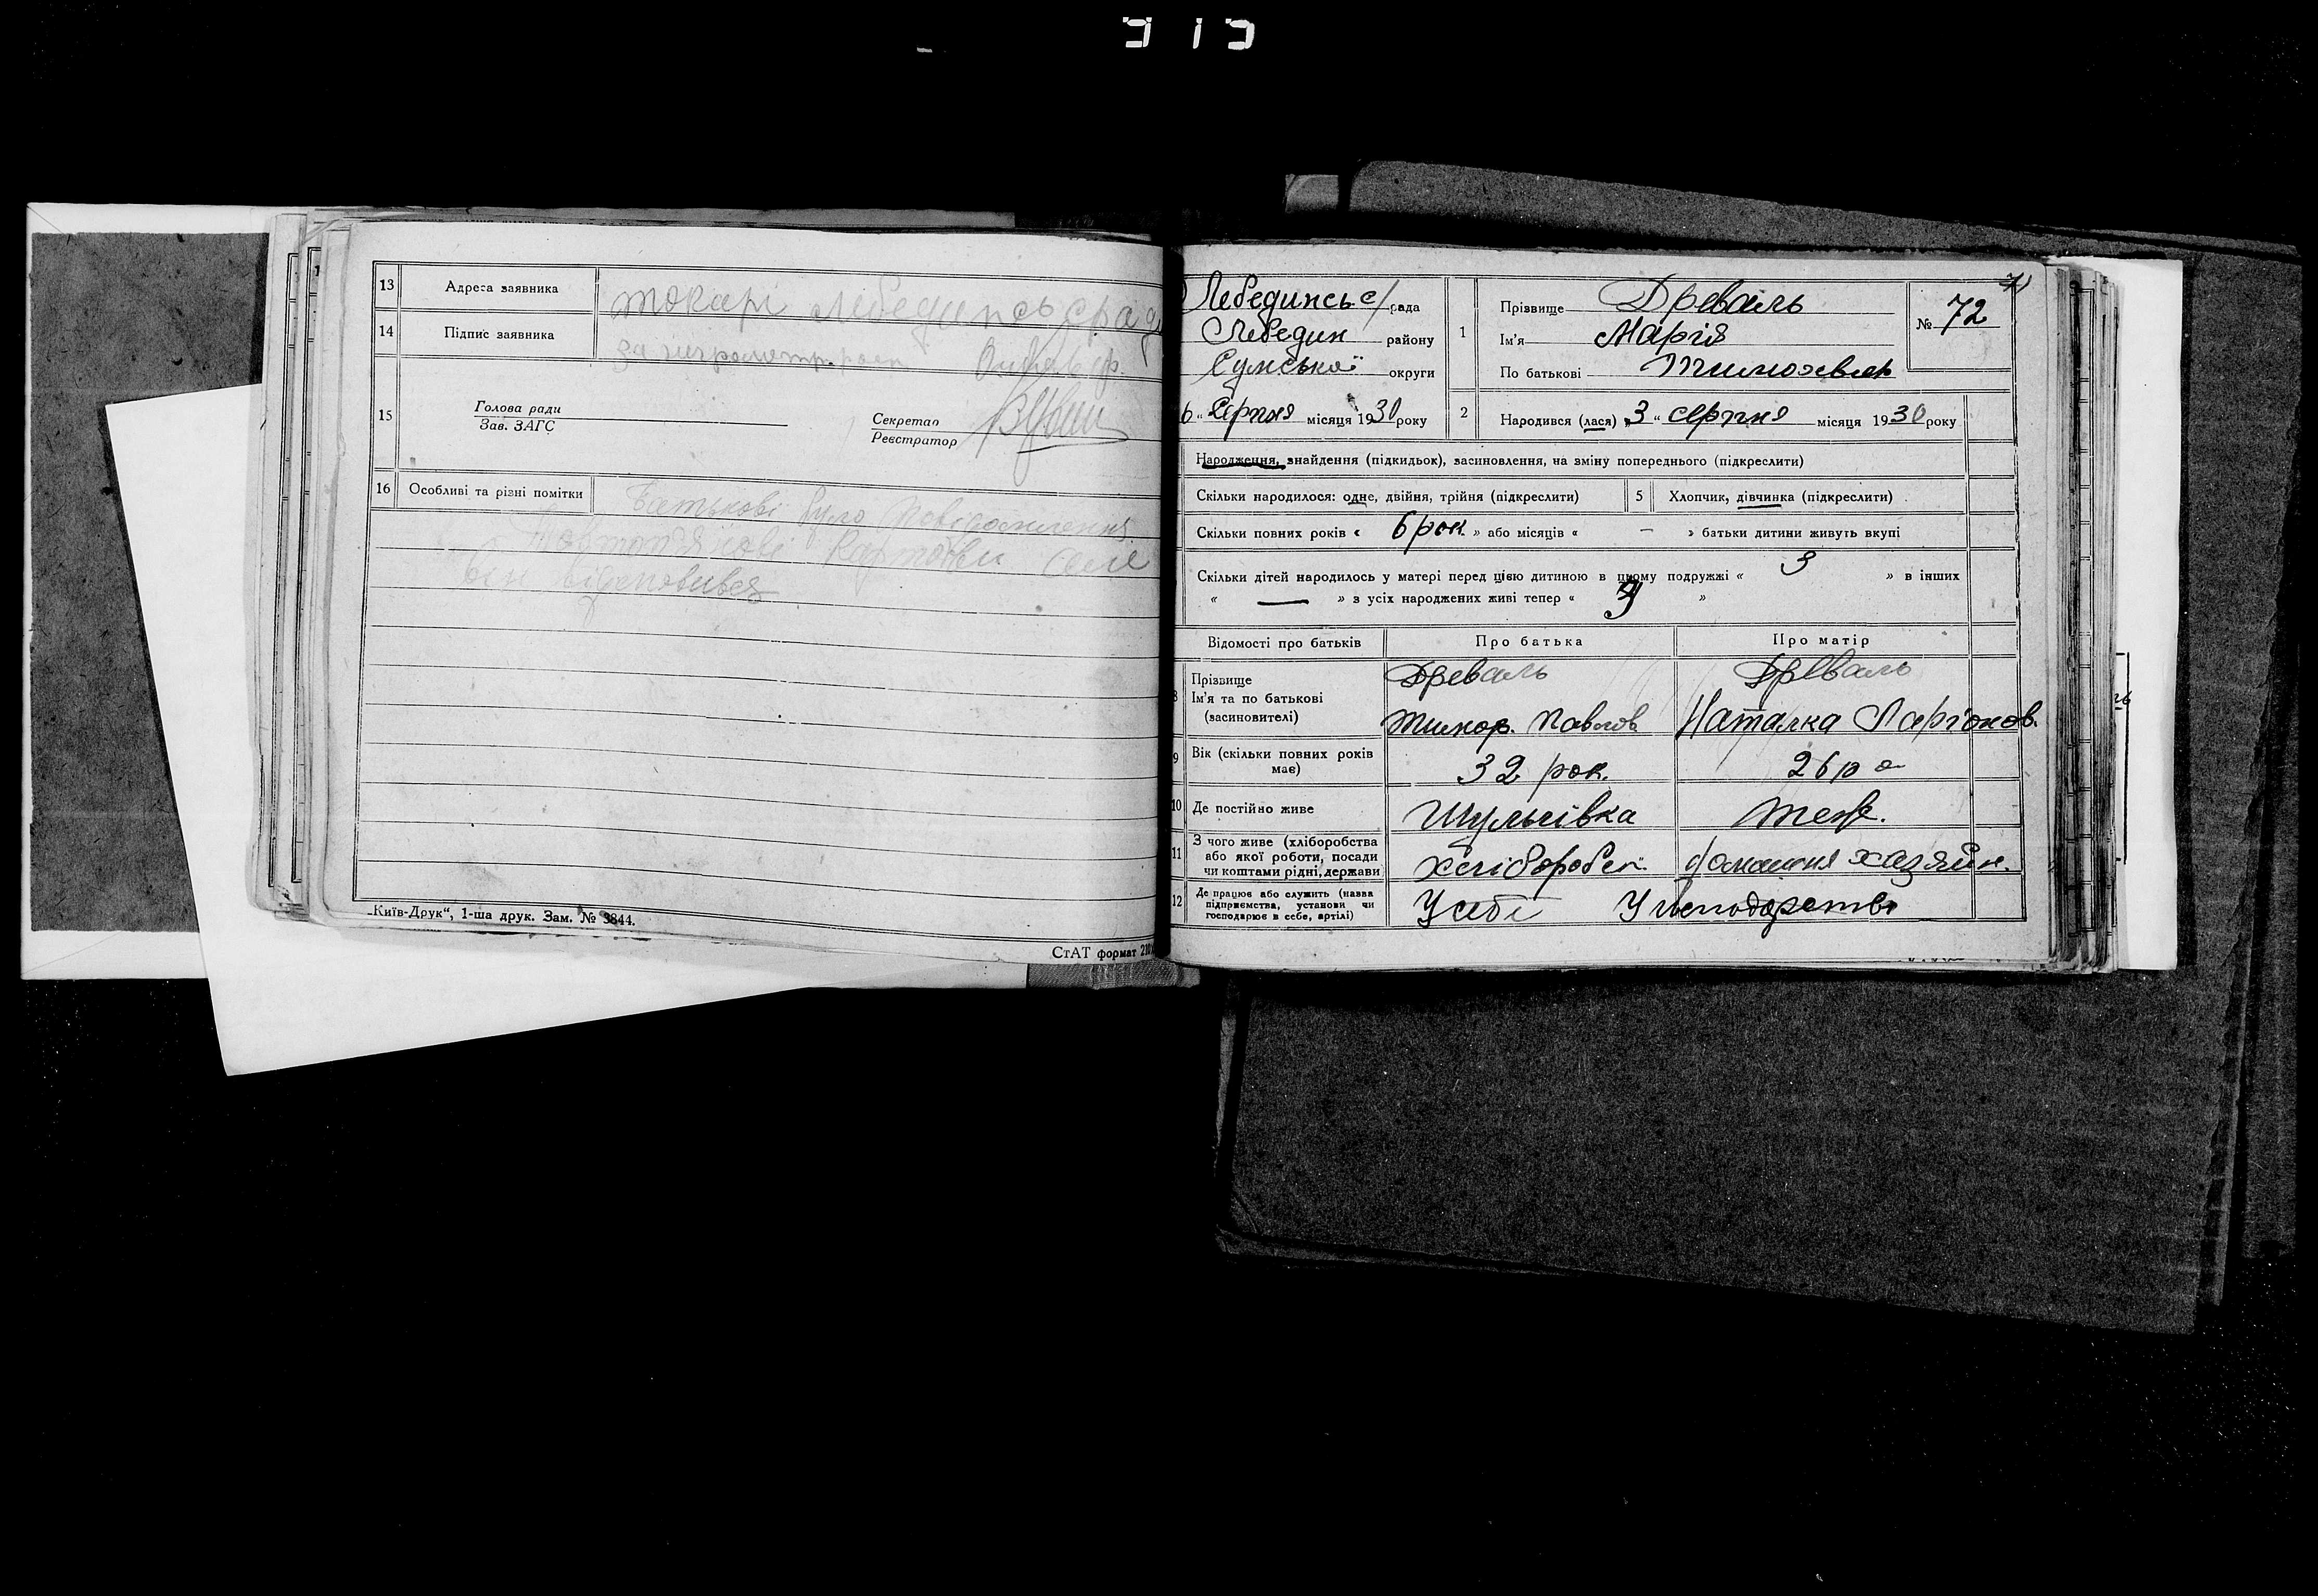 13 Адреса заявника Токарі Лебединсь с рада
14 Підпис заявника за
15 Голова ради
Зав. ЗАГС
Секретар
Реєстратор
16 Особливі та різні помітки Батькові було
він відмовився
„Київ-Друк“, 1-ша друк. Зам. № 3844.
СтАТ формат
Лебединсь с/рада
Лебедин району
Сумської округи
6 „ Серпня місяця 1930 року
1 Прізвище Древаль
Ім'я Марія
По батькові Тимохвієв
№ 72
2 Народився (лася) „3“ серпня місяця 1930 року
Народження, знайдення (підкидьок), засиновлення, на зміну попереднього (підкреслити)
Скільки народилося: одне, двійня, трійня (підкреслити) 5 Хлопчик, дівчинка (підкреслити)
Скільки повних років « 6 рок. » або місяців « – » батьки дитини живуть вкупі
Скільки дітей народилось у матері перед цією дитиною в цьому подружжі « 3 » в інших
« — » з усіх народжених живі тепер « »
Відомості про батьків Про батька Про матір
8 Прізвище Древаль Древаль
Ім'я та по батькові
(засиновителі) Тимох. Павлов Наталка Ларіонов.
9 Вік (скільки повних років
має) 32 рок. 26 ро
10 Де постійно живе Шульгівка теж.
11 З чого живе (хліборобства
або якої роботи, посади
чи коштами рідні, держави) Хлібороб домашня хазяйн.
12 Де працює або служить (назва
підприємства, установи чи
господарює в себе, артілі) У себе У господарстві